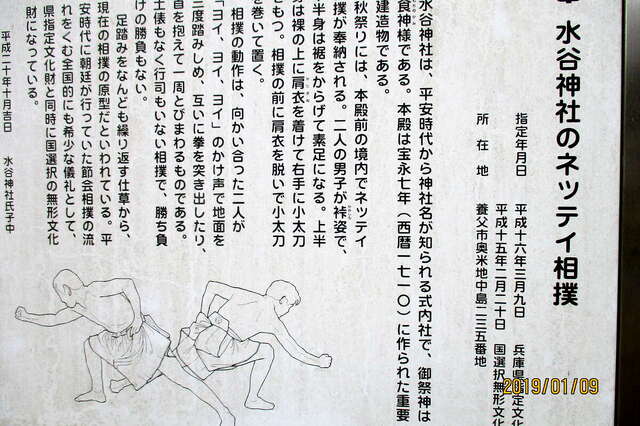 水谷神社のネッテイ相撲
指定年月日 平成十六年三月九日 兵庫県指定文化
平成十五年二月二十日 国選択無形文化
所在地 養父市奥米地中島二三五番地
水谷神社は、平安時代から神社名が知られる式内社で、御祭神は
食神様である。本殿は宝永七年（西暦一七一〇）に作られた重要
建造物である。
秋祭りには、本殿前の境内でネッテイ
撲が奉納される。二人の男子が裃姿で、
半身は裾をからげて素足になる。上半
身は裸の上に肩衣を着けて右手に小太刀
をもつ。相撲の前に肩衣を脱いで小太刀
を巻いて置く。
相撲の動作は、向かい合った二人が
「ヨイ、ヨイ、ヨイ」のかけ声で地面を
三度踏みしめ、互いに拳を突き出したり、
首を抱えて一周とびまわるものである。
土俵もなく行司もいない相撲で、勝ち負
けの勝負もない。
足踏みをなんども繰り返す仕草から、
現在の相撲の原型だといわれている。平
安時代に朝廷が行っていた節会相撲の流
れをくむ全国的にも希少な儀礼として、
県指定文化財と同時に国選択の無形文化
財になっている。
平成二十年十月吉日 水谷神社氏子中
2019/01/09